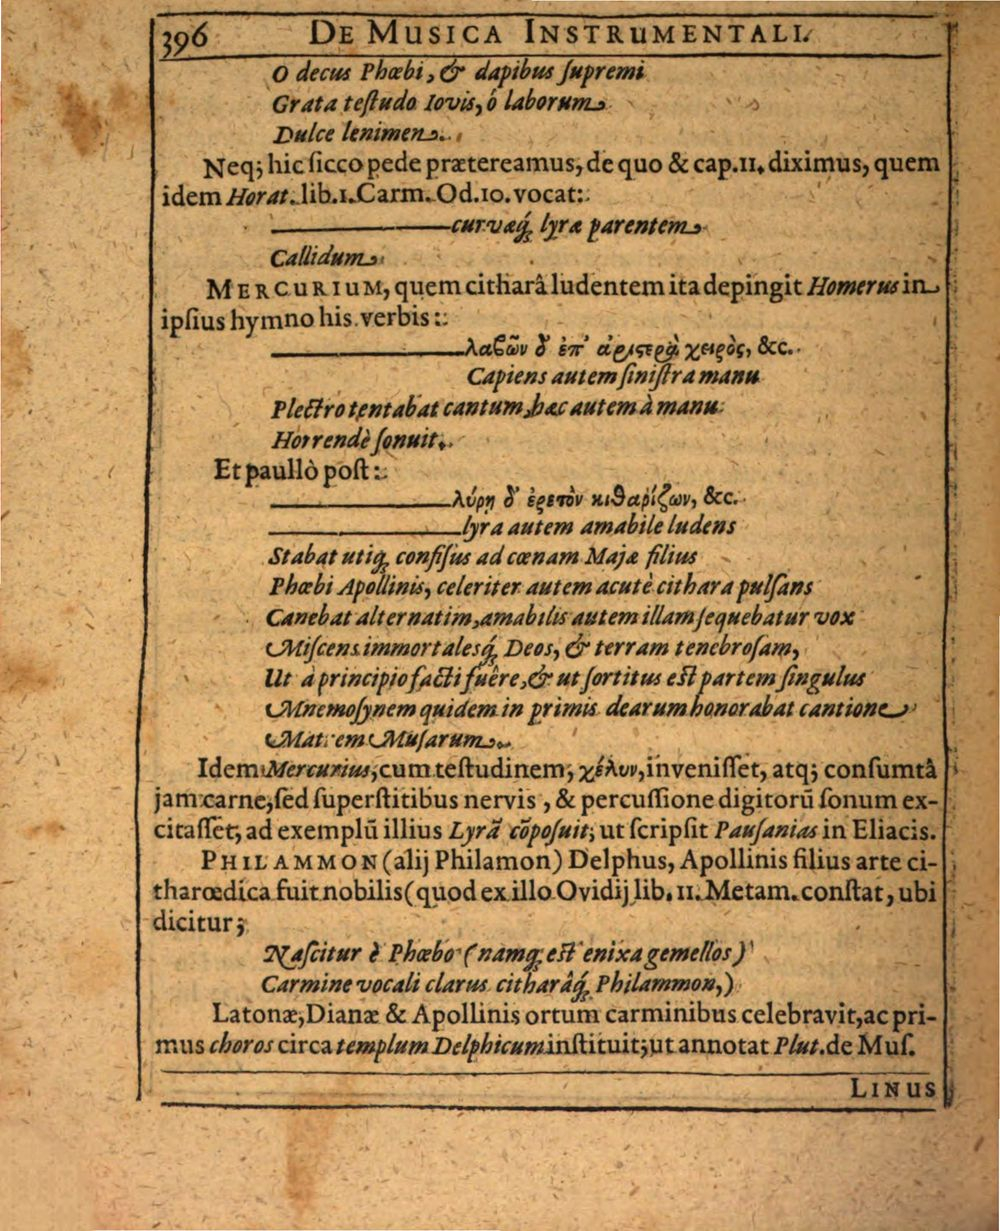 396 DE MUSICA INSTRUMENTALI.
O decus Phœbi, & dapibus ſupremi
Grata teſtudo Iovis, ó laborum
Dulce lenimen.
Neq; hic ſicco pede prætereamus, de quo & cap. 11. diximus, quem
idem Horat. lib. 1. Carm. Od. 10. vocat:
curvæq́; lyræ parentem
Callidum
MERCURIUM, quem citharâ ludentem ita depingit Homerus in
ipſius hymno his verbis:
λαβὼν δ' ἐπ' ἀριςερᾷ χειρὸς, &c.
Capiens autem ſiniſtra manu
Plectro tentabat cantum, hæc autem à manu
Horrendè ſonuit.
Et paullò poſt:
λύρῃ δ' ἐρετὸν κιθαρίζων, &c.
lyra autem amabile ludens
Stabat utiq; confiſus ad cœnam Majæ filius
Phœbi Apollinis, celeriter autem acutè cithara pulſans
Canebat alternatim, amabilis autem illam ſequebatur vox
Miſcens immortalesq́; Deos, & terram tenebroſam,
Ut à principio facti fuêre, & ut ſortitus eſt partem ſingulus
Mnemoſynem quidem in primis dearum honorabat cantione
Matrem Muſarum.
Idem Mercurius, cum teſtudinem, χέλυν, inveniſſet, atq; conſumtâ
jam carne, ſed ſuperſtitibus nervis, & percuſſione digitorũ ſonum ex-
citaſſet, ad exemplũ illius Lyrã cõpoſuit; ut ſcripſit Pauſanias in Eliacis.
PHILAMMON (alij Philamon) Delphus, Apollinis filius arte ci-
tharœdica fuit nobilis (quod ex illo Ovidij lib. 11. Metam. conſtat, ubi
dicitur;
Naſcitur è Phœbo (namq; eſt enixa gemellos)
Carmine vocali clarus citharâq́; Philammon,)
Latonæ, Dianæ & Apollinis ortum carminibus celebravit, ac pri-
mus choros circa templum Delphicum inſtituit; ut annotat Plut. de Muſ.
LINUS